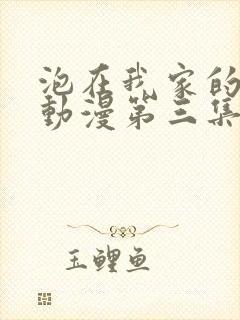 泡在我家的
動漫第三集
玉鲤鱼